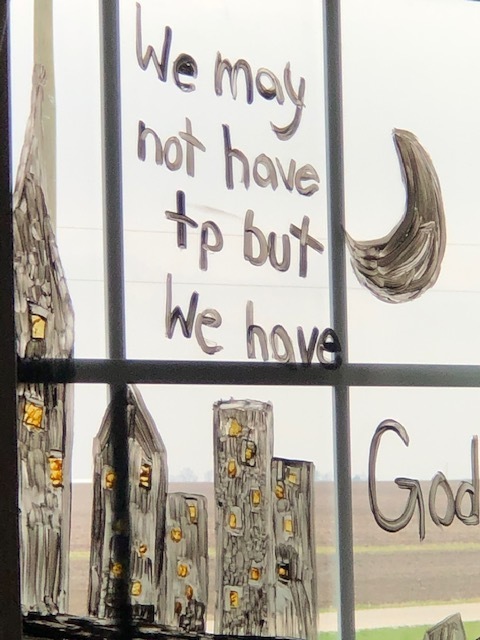 We may
not have
tp but
We have
God